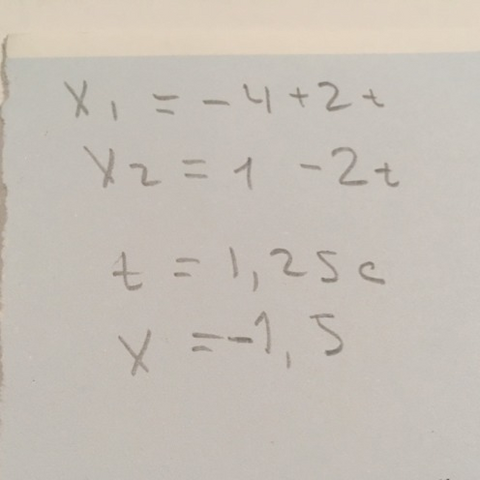 x₁ = -4+2t
x₂ = 1 -2t
t = 1,25c
x =-1,5